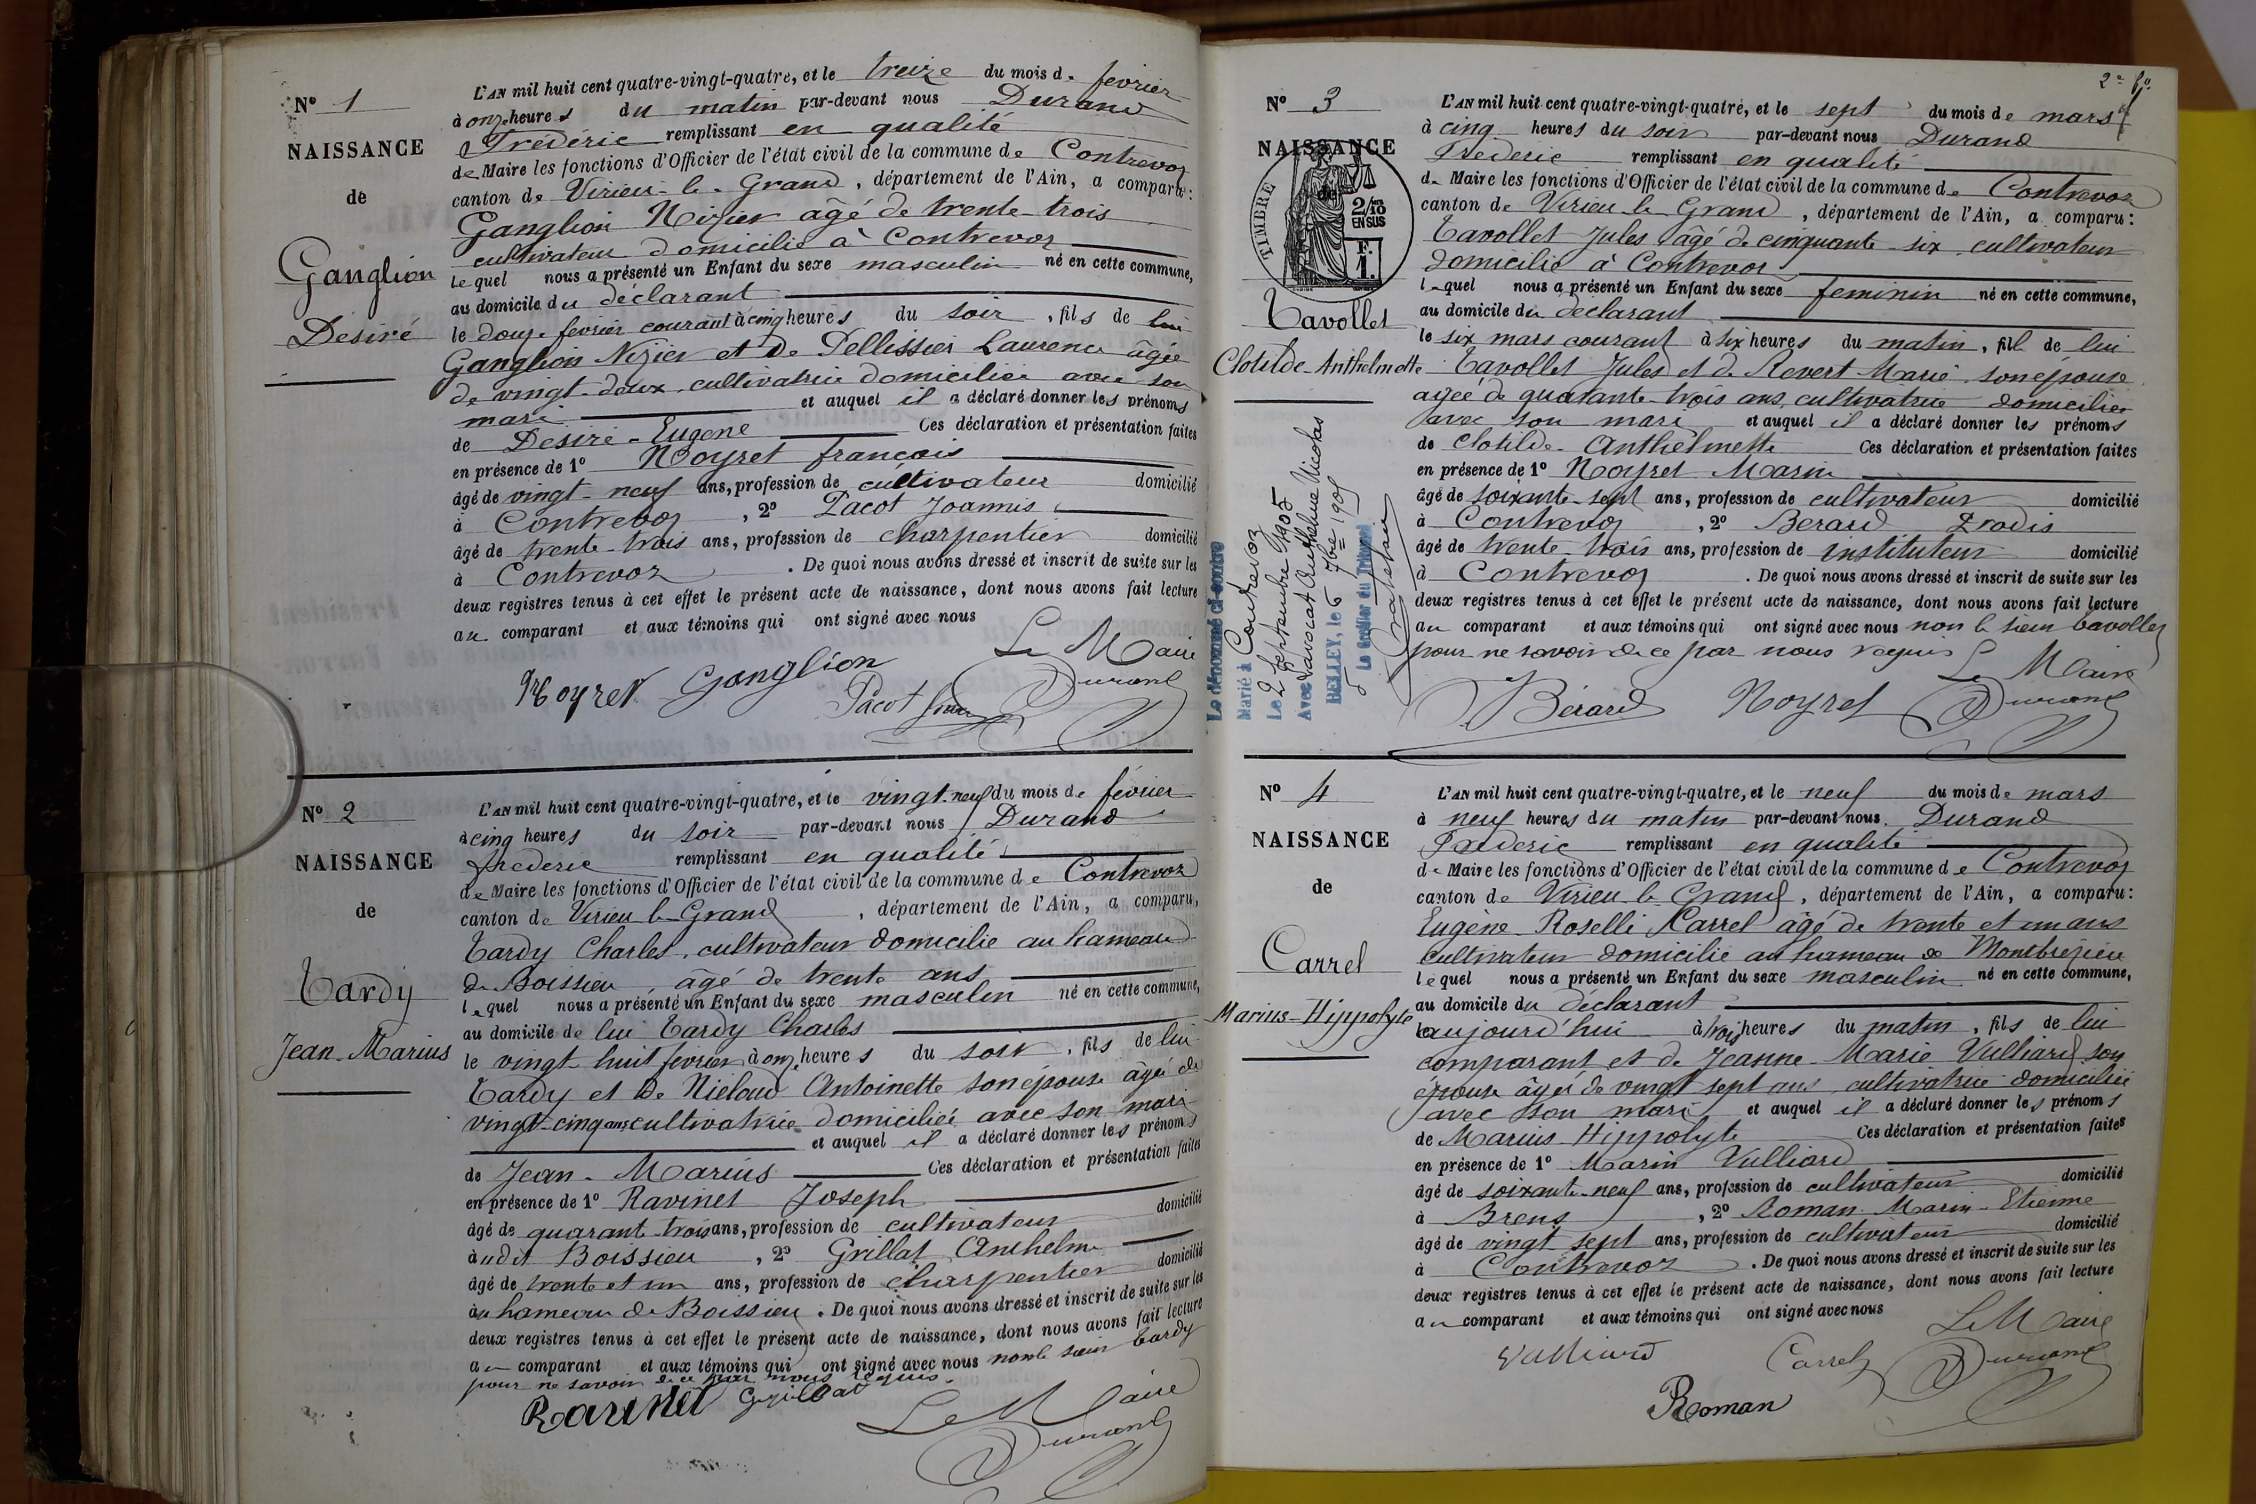 N° 1
NAISSANCE
de
Ganglion
Désiré
L'AN mil huit cent quatre-vingt-quatre, et le treize du mois de février
à onze heures du matin par-devant nous Durand
Frédéric remplissant en qualité
de Maire les fonctions d'Officier de l'état civil de la commune de Contrevoz
canton de Virieu-le-Grand, département de l'Ain, a comparu:
Ganglion Nizier âgé de trente-trois
cultivateur domicilié à Contrevoz
lequel nous a présenté un Enfant du sexe masculin né en cette commune,
au domicile du déclarant
le douze février courant à cinq heures du soir, fils de lui
Ganglion Nizier et de Pellissier Laurence âgée
de vingt-deux cultivatrice domiciliée avec son
mari et auquel il a déclaré donner les prénoms
de Désiré-Eugène Ces déclaration et présentation faites
en présence de 1° Noyret françois
âgé de vingt-neuf ans, profession de cultivateur domicilié
à Contrevoz, 2° Pacot Joannis
âgé de trente-trois ans, profession de charpentier domicilié
à Contrevoz. De quoi nous avons dressé et inscrit de suite sur les
deux registres tenus à cet effet le présent acte de naissance, dont nous avons fait lecture
au comparant et aux témoins qui ont signé avec nous
Le Maire
Noyret Ganglion Pacot Durand
N° 2
NAISSANCE
de
Tardy
Jean-Marius
L'AN mil huit cent quatre-vingt-quatre, et le vingt-neuf du mois de février
à cinq heures du soir par-devant nous Durand
frederic remplissant en qualité
de Maire les fonctions d'Officier de l'état civil de la commune de Contrevoz
canton de Virieu-le-Grand, département de l'Ain, a comparu,
Tardy Charles, cultivateur domicilié au hameau
de Boissieu, âgé de trente ans
lequel nous a présenté un Enfant du sexe masculin né en cette commune,
au domicile de lui Tardy Charles
le vingt huit fevrier à onze heures du soir, fils de lui
Tardy et de Nieloud Antoinette son épouse âgée de
vingt-cinq ans cultivatrice domiciliée avec son mari
et auquel il a déclaré donner les prénoms
de Jean-Marius Ces déclaration et présentation faites
en présence de 1° Ravinet Joseph
âgé de quarant-trois ans, profession de cultivateur domicilié
à udit Boissieu, 2° Grillat Anthelme
âgé de trente et un ans, profession de charpentier domicilié
au hameau de Boissieu. De quoi nous avons dressé et inscrit de suite sur les
deux registres tenus à cet effet le présent acte de naissance, dont nous avons fait lecture
au comparant et aux témoins qui ont signé avec nous non le sieur Tardy
pour ne savoir de ce par nous requis.
Ravinet Grillat Le Maire
Durand
2e fo
N° 3
NAISSANCE
de
TIMBRE
2/10 EN SUS
F. 1.
Tavollet
Clotilde-Anthelmette
Le dénommé ci-contre
Marié à Contrevoz
Le 2 Septembre 1905
Avec Savocat Anthelme Nicolas
BELLEY, le 6 7bre 1905
Le Greffier du Tribunal
L'AN mil huit cent quatre-vingt-quatre, et le sept du mois de mars
à cinq heures du soir par-devant nous Durand
Frederic remplissant en qualité
de Maire les fonctions d'Officier de l'état civil de la commune de Contrevoz
canton de Virieu-le-Grand, département de l'Ain, a comparu:
Tavollet Jules âgé de cinquante-six cultivateur
domicilié à Contrevoz
lequel nous a présenté un Enfant du sexe feminin né en cette commune,
au domicile du déclarant
le six mars courant à six heures du matin, fille de lui
Tavollet Jules et de Revert Marie son épouse
agée de quarante-trois ans, cultivatrice domiciliée
avec son mari et auquel il a déclaré donner les prénoms
de Clotilde-Anthelmette Ces déclaration et présentation faites
en présence de 1° Noyret Marin
âgé de soixante-sept ans, profession de cultivateur domicilié
à Contrevoz, 2° Berard
âgé de trente-trois ans, profession de instituteur domicilié
à Contrevoz. De quoi nous avons dressé et inscrit de suite sur les
deux registres tenus à cet effet le présent acte de naissance, dont nous avons fait lecture
au comparant et aux témoins qui ont signé avec nous non le sieur Tavollet
pour ne savoir de ce par nous requis Le Maire
Bérard Noyret Durand
N° 4
NAISSANCE
de
Carrel
Marius-Hippolyte
L'AN mil huit cent quatre-vingt-quatre, et le neuf du mois de mars
à neuf heures du matin par-devant nous Durand
Frederic remplissant en qualité
de Maire les fonctions d'Officier de l'état civil de la commune de Contrevoz
canton de Virieu-le-Grand, département de l'Ain, a comparu:
Eugène-Roselli Carrel âgé de trente et un ans
cultivateur domicilié au hameau de Montbrézieu
lequel nous a présenté un Enfant du sexe masculin né en cette commune,
au domicile du déclarant
aujourd'hui à trois heures du matin, fils de lui
comparant et de Jeanne-Marie Vulliard son
épouse âgée de vingt sept ans, cultivatrice domiciliée
avec son mari et auquel il a déclaré donner les prénoms
de Marius-Hippolyte Ces déclaration et présentation faites
en présence de 1° Marin Vulliard
âgé de soixante-neuf ans, profession de cultivateur domicilié
à Brens, 2° Roman Marin-Etienne
âgé de vingt sept ans, profession de cultivateur domicilié
à Contrevoz. De quoi nous avons dressé et inscrit de suite sur les
deux registres tenus à cet effet le présent acte de naissance, dont nous avons fait lecture
au comparant et aux témoins qui ont signé avec nous
Le Maire
Vulliard Carrel Durand
Roman